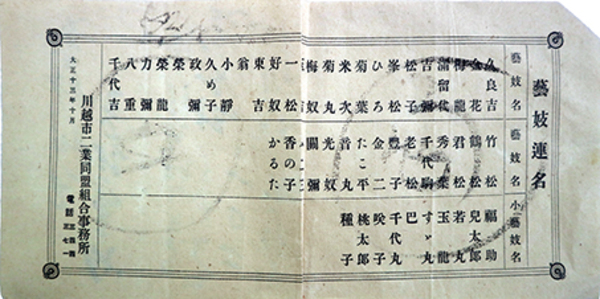 藝妓連名
藝妓名
久良吉
金花
梅龍
滿留代
吉彌
松子
峯松
ひろ
菊葉
米次
菊丸
梅奴
一松
好奴
東吉
翁
小靜
久め子
政彌
榮
榮龍
力彌
八重
千代吉
藝妓名
竹松
鶴松
君松
秀葉
千代駒
老松
豊子
金二
たこ平
音丸
光奴
關彌
香の子
かるた
小藝妓名
福助
兒太郎
若丸
玉龍
すゞ丸
巴
千代丸
咲子
桃太郎
種子
川越市二業同盟組合事務所
電話
大正十三年十月